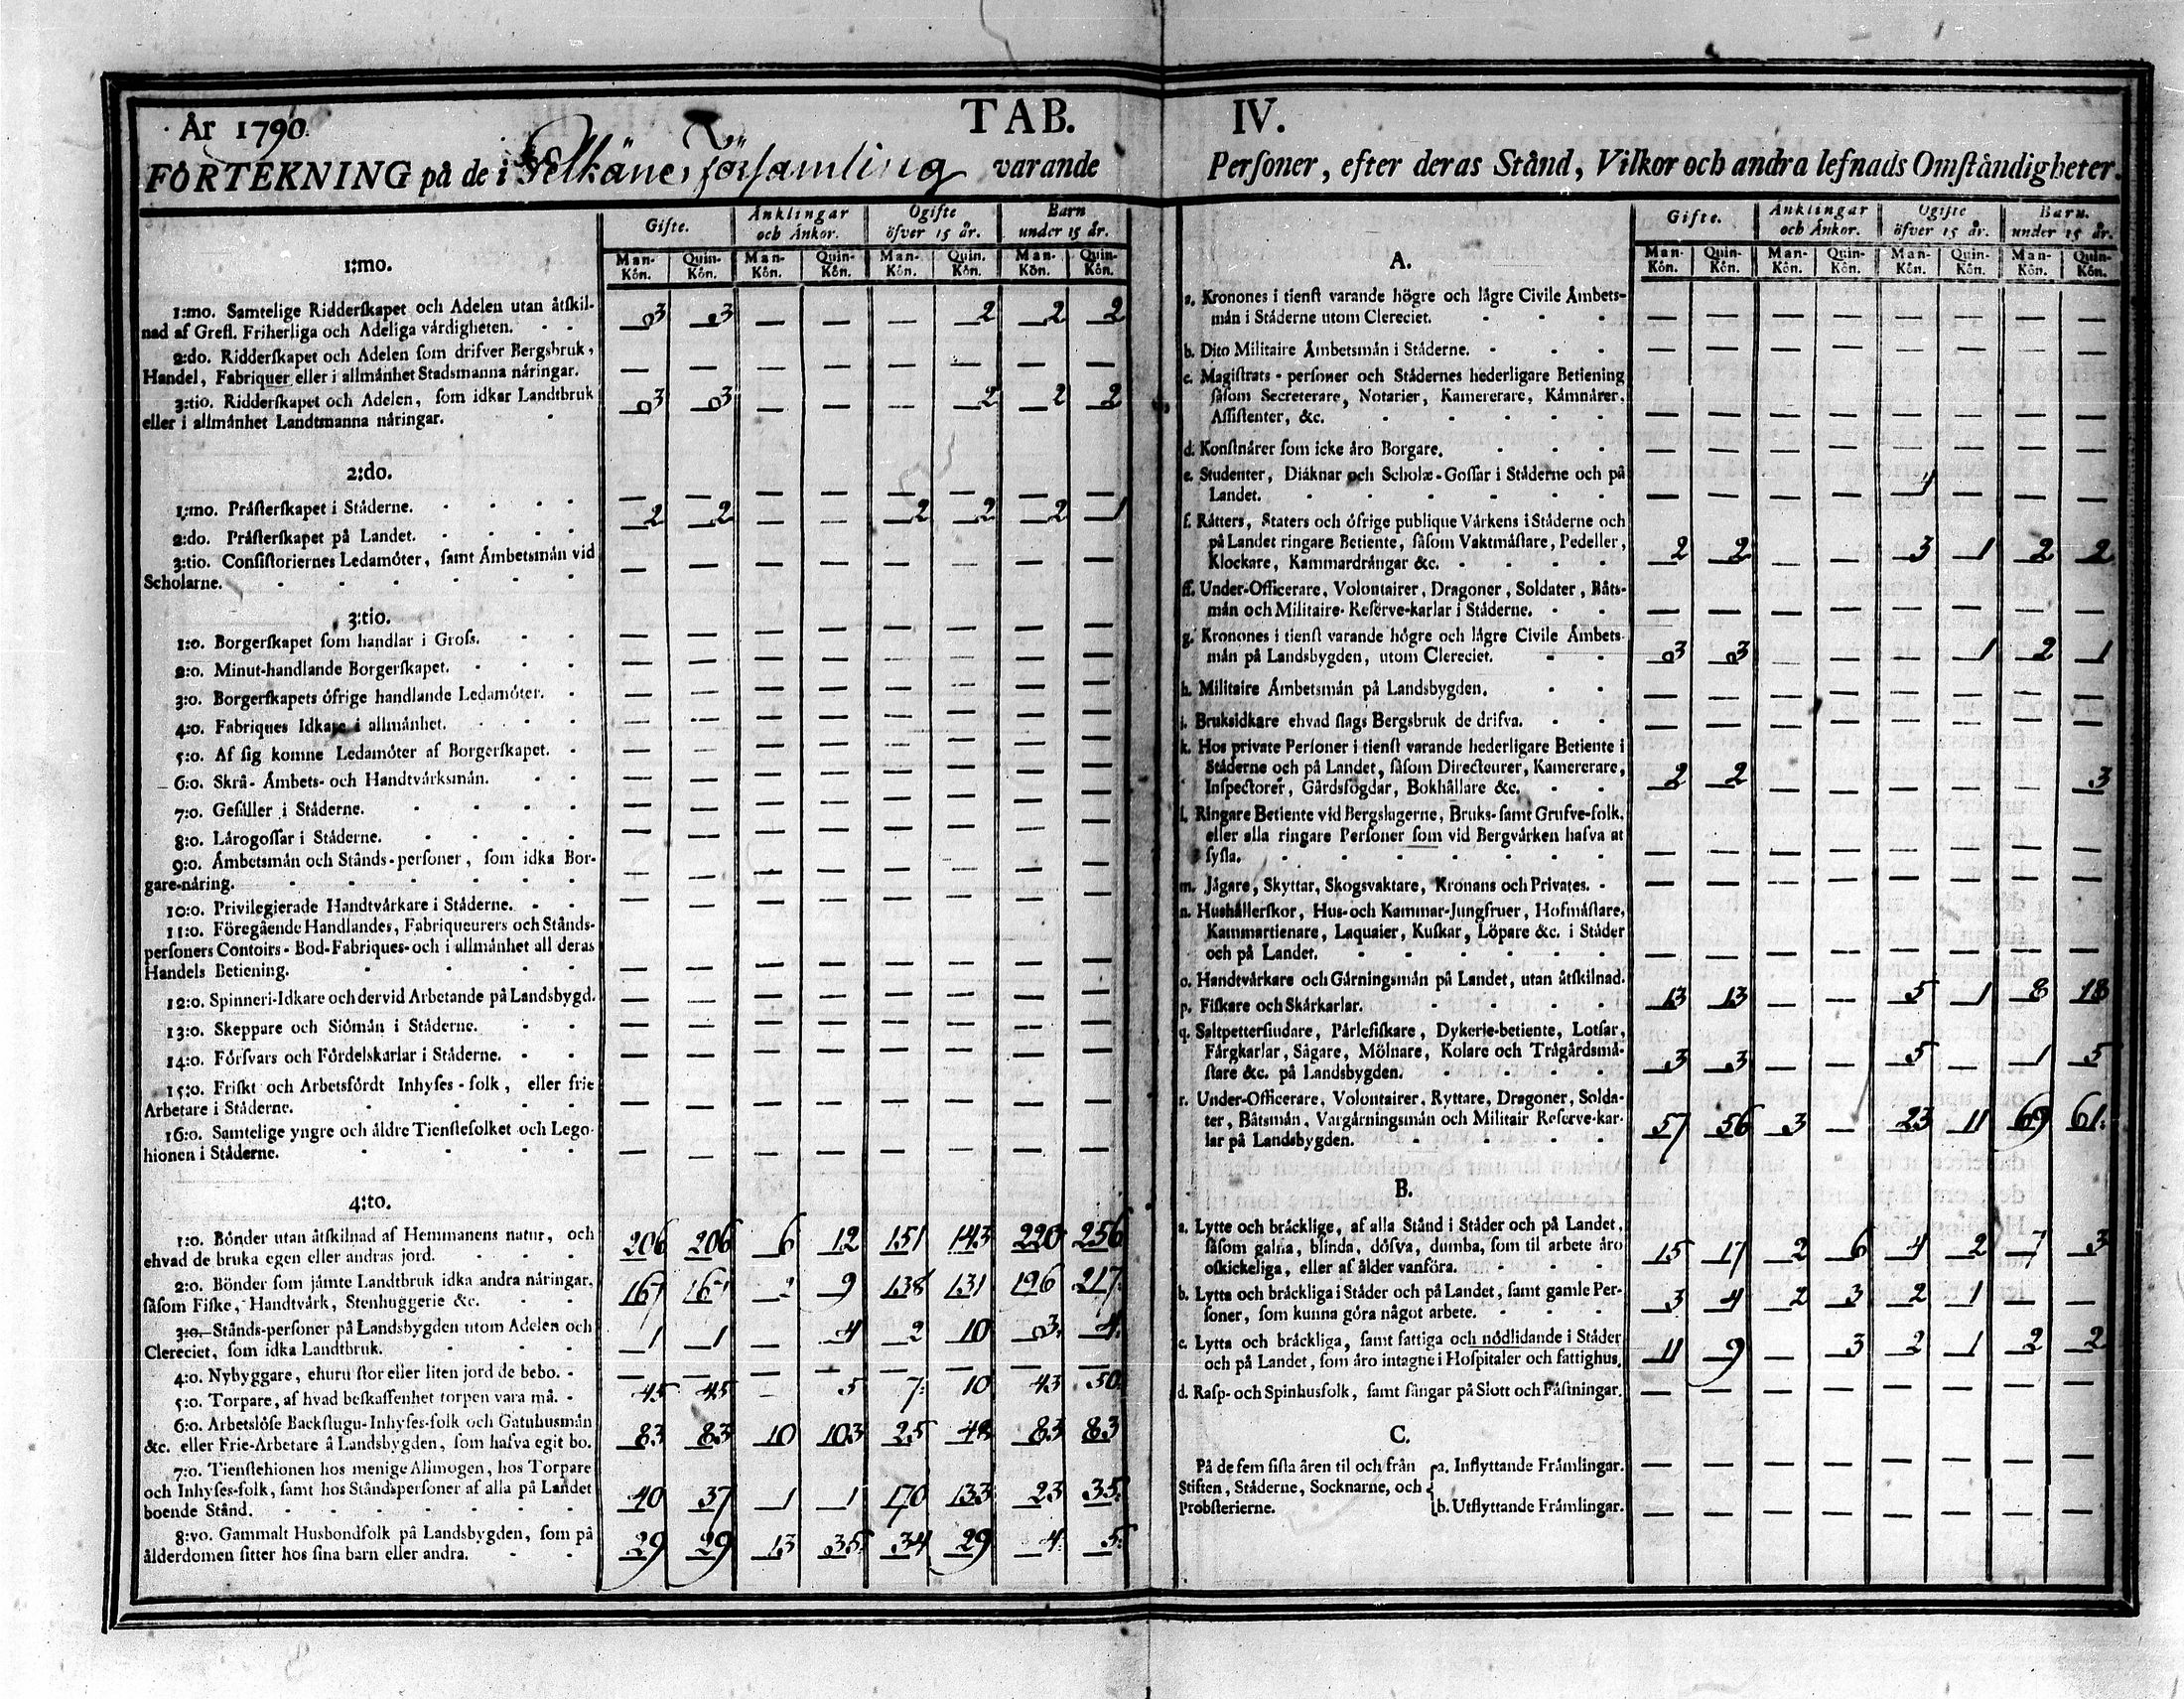 År 1790. TAB. IV.
FÖRTEKNING på de i Pelkäne Församling varande Perſoner, efter deras Stånd, Vilkor och andra lefnads Omſtändigheter.
Gifte. Änklingar och Änkor. Ogifte öfver 15 år. Barn under 15 år.
1:mo. Man-Kön. Quin-Kön. Man-Kön. Quin-Kön. Man-Kön. Quin-Kön. Man-Kön. Quin-Kön.
1:mo. Samtelige Ridderſkapet och Adelen utan åtſkil-
nad af Grefl. Friherliga och Adeliga värdigheten. 3 3 — — — 2 2 2
2:do. Ridderſkapet och Adelen ſom drifver Bergsbruk,
Handel, Fabriquer eller i allmänhet Stadsmanna näringar. — — — — — — — —
3:tio. Ridderſkapet och Adelen, ſom idkar Landtbruk
eller i allmänhet Landtmanna näringar. 3 3 — — — 2 2 2
2:do.
1:mo. Präſterſkapet i Städerne. — — — — — — — —
2:do. Präſterſkapet på Landet. 2 2 — — 2 2 2 1
3:tio. Conſiſtoriernes Ledamöter, ſamt Ämbetsmän vid
Scholarne. — — — — — — — —
3:tio.
1:o. Borgerſkapet ſom handlar i Groſs. — — — — — — — —
2:o. Minut-handlande Borgerſkapet. — — — — — — — —
3:o. Borgerſkapets öfrige handlande Ledamöter. — — — — — — — —
4:o. Fabriques Idkare i allmänhet. — — — — — — — —
5:o. Af ſig komne Ledamöter af Borgerſkapet. — — — — — — — —
6:o. Skrå- Ämbets- och Handtvärksmän. — — — — — — — —
7:o. Geſäller i Städerne. — — — — — — — —
8:o. Lärogoſſar i Städerne. — — — — — — — —
9:o. Ämbetsmän och Stånds-perſoner, ſom idka Bor-
gare-näring. — — — — — — — —
10:o. Privilegierade Handtvärkare i Städerne. — — — — — — — —
11:o. Föregående Handlandes, Fabriqueurers och Stånds-
perſoners Contoirs- Bod-Fabriques-och i allmänhet all deras
Handels Betiening. — — — — — — — —
12:o. Spinneri-Idkare och dervid Arbetande på Landsbygd. — — — — — — — —
13:o. Skeppare och Siömän i Städerne. — — — — — — — —
14:o. Förſvars och Fördelskarlar i Städerne. — — — — — — — —
15:o. Friſkt och Arbetsfördt Inhyſes-folk, eller frie
Arbetare i Städerne. — — — — — — — —
16:o. Samtelige yngre och äldre Tienſtefolket och Lego-
hionen i Städerne. — — — — — — — —
4:to.
1:o. Bönder utan åtſkilnad af Hemmanens natur, och
ehvad de bruka egen eller andras jord. 206 206 6 12 151 143 220 256
2:o. Bönder ſom jämte Landtbruk idka andra näringar,
ſåſom Fiſke, Handtvärk, Stenhuggerie &c. 167 167 2 9 138 131 196 217:
3:o. Stånds-perſoner på Landsbygden utom Adelen och
Clereciet, ſom idka Landtbruk. 1 1 — 4 2 10 3: 4:
4:o. Nybyggare, ehuru ſtor eller liten jord de bebo. — — — — — — — —
5:o. Torpare, af hvad beſkaffenhet torpen vara må. 45 45 — 5 7: 10 43 50:
6:o. Arbetslöſe Backſtugu-Inhyſes-folk och Gatuhusmän
&c. eller Frie-Arbetare å Landsbygden, ſom hafva egit bo. 83 83 10 103 25 48 83 83
7:o. Tienſtehionen hos menige Allmogen, hos Torpare
och Inhyſes-folk, ſamt hos Ståndsperſoner af alla på Landet
boende Stånd. 40 37 1 1 170 133 23 35:
8:vo. Gammalt Husbondfolk på Landsbygden, ſom på
ålderdomen ſitter hos ſina barn eller andra. 29 29 13 35: 34 29 4: 5:
Gifte. Änklingar och Änkor. Ogifte öfver 15 år. Barn. under 15 år.
A. Man-Kön. Quin-Kön. Man-Kön. Quin-Kön. Man-Kön. Quin-Kön. Man-Kön. Quin-Kön.
a. Kronones i tienſt varande högre och lägre Civile Ämbets-
män i Städerne utom Clereciet. — — — — — — — —
b. Dito Militaire Ämbetsmän i Städerne. — — — — — — — —
c. Magiſtrats-perſoner och Städernes hederligare Betiening
ſåſom Secreterare, Notarier, Kamererare, Kämnärer,
Aſſiſtenter, &c. — — — — — — — —
d. Konſtnärer ſom icke äro Borgare. — — — — — — — —
e. Studenter, Diäknar och Scholæ-Goſſar i Städerne och på
Landet. — — — — 1 — — —
f. Rätters, Staters och öfrige publique Värkens i Städerne och
på Landet ringare Betiente, ſåſom Vaktmäſtare, Pedeller,
Klockare, Kammardrängar &c. 2 2 — — 3 1 2 2
ff. Under-Officerare, Volontairer, Dragoner, Soldater, Båts-
män och Militaire-Reſerve-karlar i Städerne. — — — — — — — —
g. Kronones i tienſt varande högre och lägre Civile Ämbets-
män på Landsbygden, utom Clereciet. 3 3 — — — 1 2 1
h. Militaire Ämbetsmän på Landsbygden. — — — — — — — —
i. Bruksidkare ehvad ſlags Bergsbruk de drifva. — — — — — — — —
k. Hos private Perſoner i tienſt varande hederligare Betiente i
Städerne och på Landet, ſåſom Directeurer, Kamererare,
Inſpectorer, Gårdsfogdar, Bokhållare &c. 2 2 — — — — — 3
l. Ringare Betiente vid Bergslagerne, Bruks-ſamt Grufve-folk,
eller alla ringare Perſoner ſom vid Bergvärken hafva at
ſyſla. — — — — — — — —
m. Jägare, Skyttar, Skogsvaktare, Kronans och Privates. — — — — — — — —
n. Hushållerſkor, Hus-och Kammar-Jungfruer, Hofmäſtare,
Kammartienare, Laquaier, Kuſkar, Löpare &c. i Städer
och på Landet. — — — — — — — —
o. Handtvärkare och Gärningsmän på Landet, utan åtſkilnad. 13 13 — — 5 1 8 18
p. Fiſkare och Skärkarlar.
q. Saltpetterſiudare, Pärlefiſkare, Dykerie-betiente, Lotſar,
Färgkarlar, Sågare, Mölnare, Kolare och Trägårdsmä-
ſtare &c. på Landsbygden. 3 3 — — 5 — 1 5
r. Under-Officerare, Volontairer, Ryttare, Dragoner, Solda-
ter, Båtsmän, Vargärningsmän och Militair Reſerve-kar-
lar på Landsbygden. 57 56 3 — 23 11 69 61:
B.
a. Lytte och bräcklige, af alla Stånd i Städer och på Landet,
ſåſom galna, blinda, döfva, dumba, ſom til arbete äro
oſkickeliga, eller af ålder vanföra. 15 17 2 6 4 2 7 3
b. Lytta och bräckliga i Städer och på Landet, ſamt gamle Per-
ſoner, ſom kunna göra något arbete. 3 4 2 3 2 1 — —
c. Lytta och bräckliga, ſamt fattiga och nödlidande i Städer
och på Landet, ſom äro intagne i Hoſpitaler och fattighus. 11 9 — 3 2 1 2 2
d. Raſp- och Spinhusfolk, ſamt fångar på Slott och Fäſtningar. — — — — — — — —
C.
På de fem ſiſta åren til och från
Stiften, Städerne, Socknarne, och
Probſterierne.
a. Inflyttande Främlingar. — — — — — — — —
b. Utflyttande Främlingar. — — — — — — — —